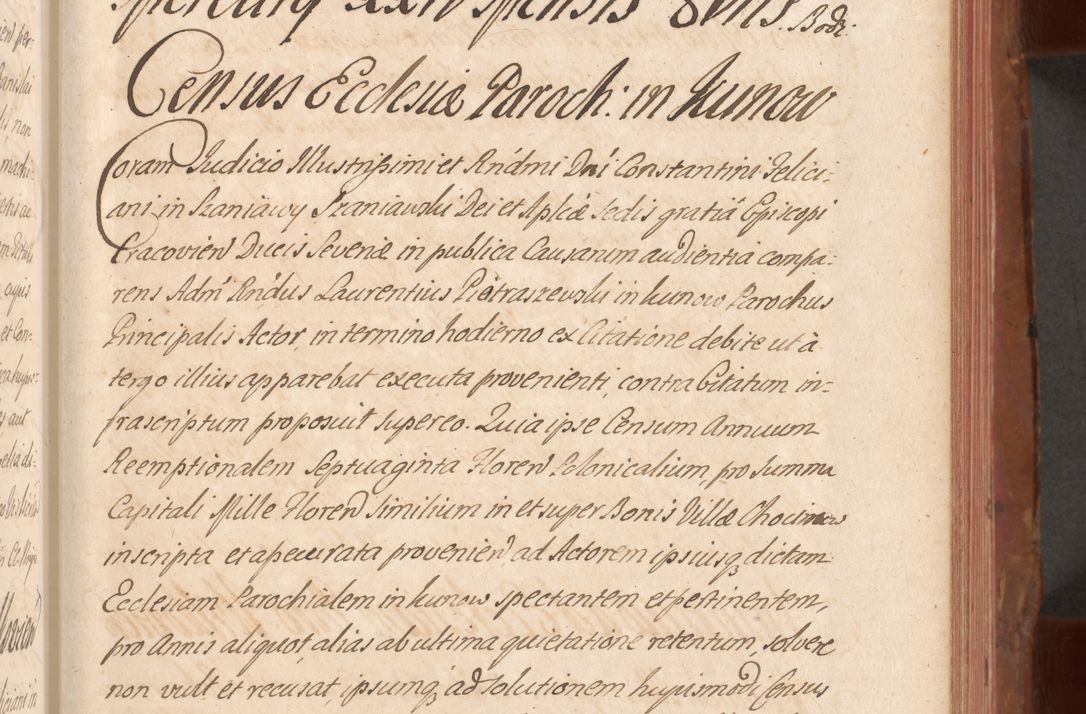 Census Ecclesiæ Paroch: in Kunow
Coram Judicio Illustrissimi et Rndmi Dni Constantini Felici=
ani in Szaniawy Szaniawski Dei et Aplicæ Sedis gratia Episcopi
Cracovien Ducis Severiæ in publica Causarum audientia compa=
rens Adm Rndus Laurentius Pietraszewski in Kunow Parochus
Principalis Actor, in termino hodierno ex Citatione debite ut à
tergo illius apparebat executa provenienti, contra Citatum in=
frascriptum proposuit super eo. Quia ipse Censum Annuum
Reemptionalem Septuaginta Floren Polonicalium, pro Summa
Capitali Mille Floren Similium in et super Bonis Villæ
inscripta et apecurata provenien, ad Actorem ipsiusq dictam
Ecclesiam Parochialem in Kunow spectantem et pertinentem,
pro Annis aliquot, alias ab ultima quietatione retentum, solvere
non vult et recusat, ipsumq ad Solutionem hujusmodi Census